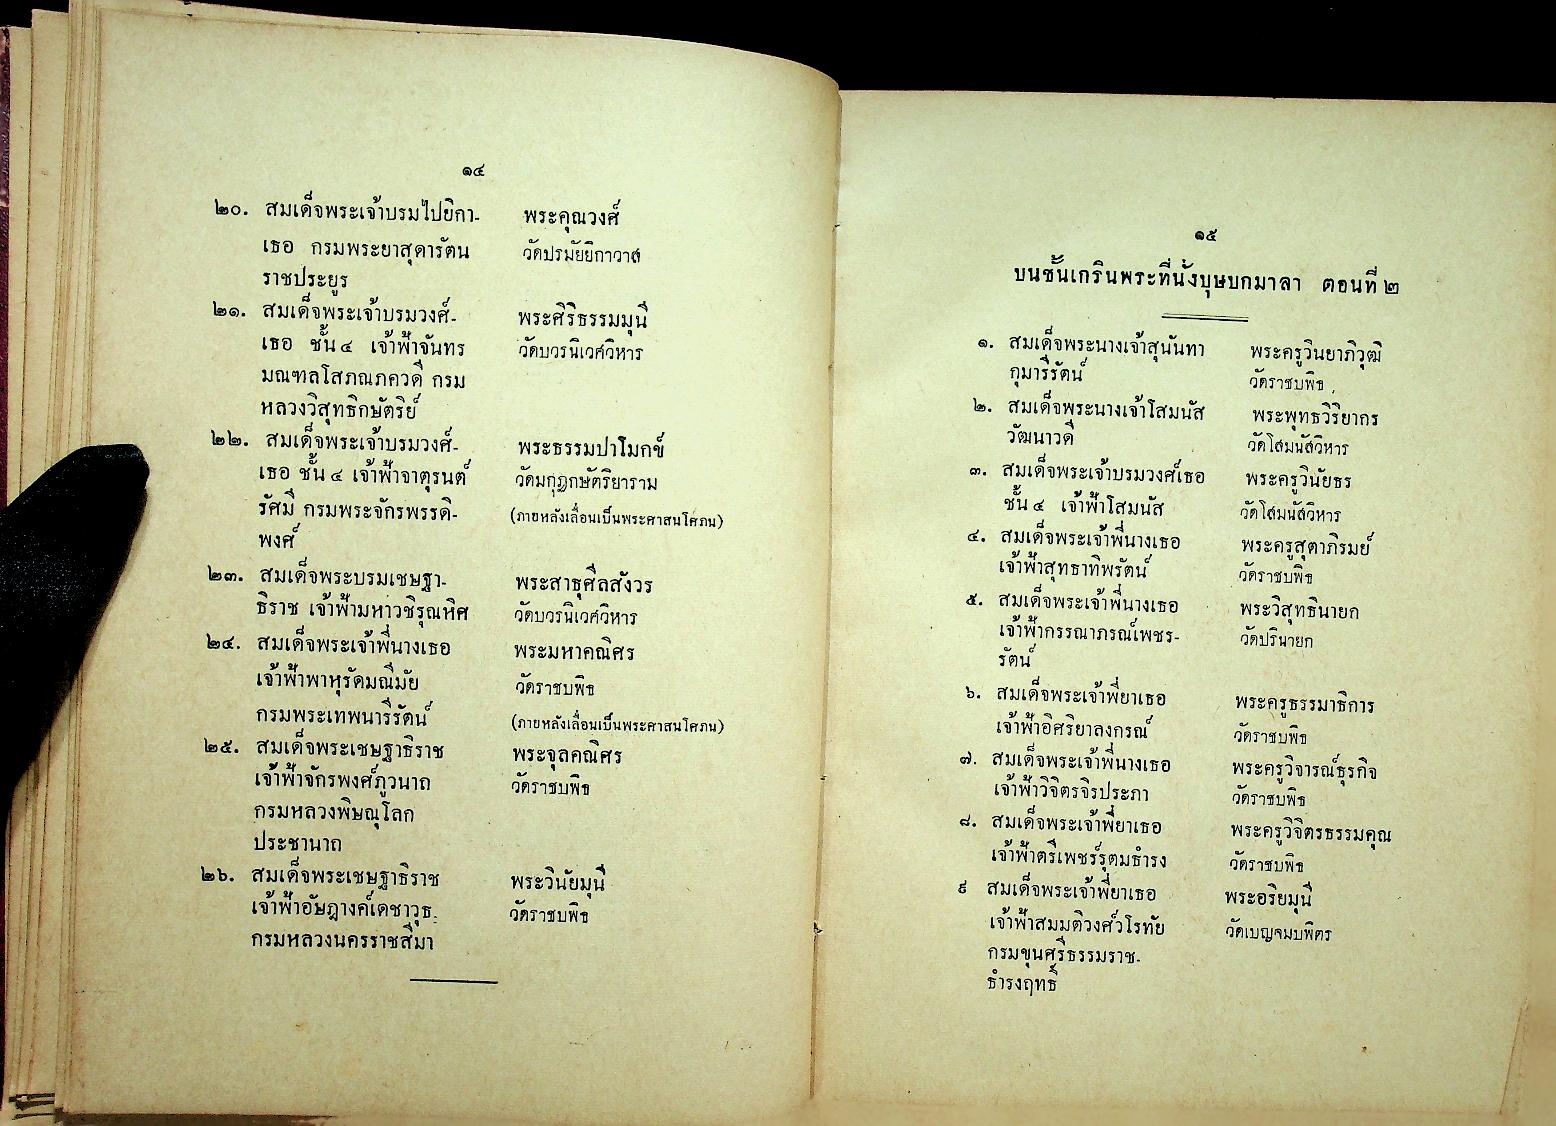 ๑๔
๒๐. สมเด็จพระเจ้าบรมไปยิกา- พระคุณวงศ์
เธอ กรมพระยาสุดารัตน วัดปรมัยยิกาวาส
ราชประยูร
๒๑. สมเด็จพระเจ้าบรมวงศ์- พระศิริธรรมมุนี
เธอ ชั้น ๔ เจ้าฟ้าจันทร วัดบวรนิเวศวิหาร
มณฑลโสภณภควดี กรม
หลวงวิสุทธิกษัตริย์
๒๒. สมเด็จพระเจ้าบรมวงศ์- พระธรรมปาโมกข์
เธอ ชั้น ๔ เจ้าฟ้าจาตุรนต์ วัดมกุฎกษัตริยาราม
รัศมี กรมพระจักรพรรดิ- (ภายหลังเลื่อนเป็นพระศาสนโศภน)
พงศ์
๒๓. สมเด็จพระบรมเชษฐา- พระสาธุศีลสังวร
ธิราช เจ้าฟ้ามหาวชิรุณหิศ วัดบวรนิเวศวิหาร
๒๔. สมเด็จพระเจ้าพี่นางเธอ พระมหาคณิศร
เจ้าฟ้าพาหุรัดมณีมัย วัดราชบพิธ
กรมพระเทพนารีรัตน์ (ภายหลังเลื่อนเป็นพระศาสนโศภน)
๒๕. สมเด็จพระเชษฐาธิราช พระจุลคณิศร
เจ้าฟ้าจักรพงศ์ภูวนาถ วัดราชบพิธ
กรมหลวงพิษณุโลก
ประชานาถ
๒๖. สมเด็จพระเชษฐาธิราช พระวินัยมุนี
เจ้าฟ้าอัษฎางค์เดชาวุธ วัดราชบพิธ
กรมหลวงนครราชสีมา
๑๕
บนชั้นเกรินพระที่นั่งบุษบกมาลา ตอนที่ ๒
๑. สมเด็จพระนางเจ้าสุนันทา พระครูวินยาภิวุฒิ
กุมารีรัตน์ วัดราชบพิธ
๒. สมเด็จพระนางเจ้าโสมนัส พระพุทธวิริยากร
วัฒนาวดี วัดโสมนัสวิหาร
๓. สมเด็จพระเจ้าบรมวงศ์เธอ พระครูวินัยธร
ชั้น ๔ เจ้าฟ้าโสมนัส วัดโสมนัสวิหาร
๔. สมเด็จพระเจ้าพี่นางเธอ พระครูสุตาภิรมย์
เจ้าฟ้าสุทธาทิพรัตน์ วัดราชบพิธ
๕. สมเด็จพระเจ้าพี่นางเธอ พระวิสุทธินายก
เจ้าฟ้ากรรณาภรณ์เพชร- วัดปรินายก
รัตน์
๖. สมเด็จพระเจ้าพี่ยาเธอ พระครูธรรมาธิการ
เจ้าฟ้าอิศริยาลงกรณ์ วัดราชบพิธ
๗. สมเด็จพระเจ้าพี่นางเธอ พระครูวิจารณ์ธุรกิจ
เจ้าฟ้าวิจิตรจิรประภา วัดราชบพิธ
๘. สมเด็จพระเจ้าพี่ยาเธอ พระครูวิจิตรธรรมคุณ
เจ้าฟ้าตรีเพชร์รุตมธำรง วัดราชบพิธ
๙ สมเด็จพระเจ้าพี่ยาเธอ พระอริยมุนี
เจ้าฟ้าสมมติวงศ์วโรทัย วัดเบญจมบพิตร
กรมขุนศรีธรรมราช-
ธำรงฤทธิ์